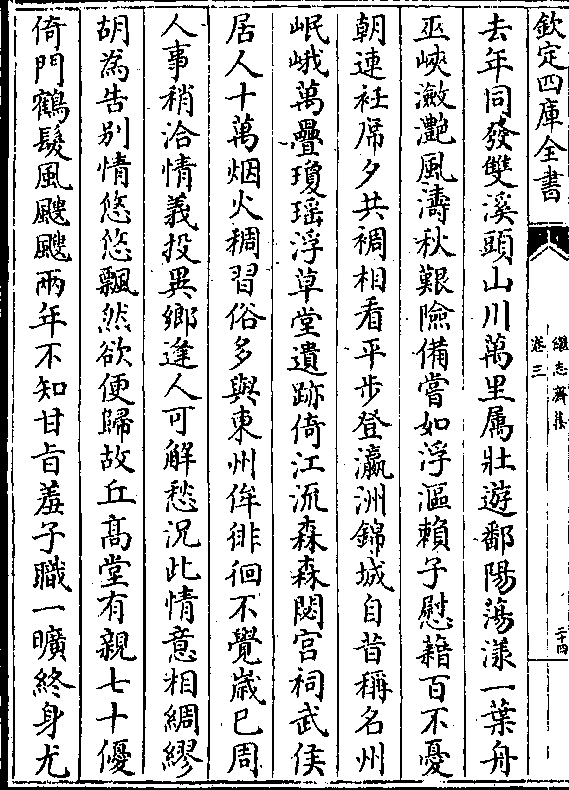 欽定四庫全書
繼志齋集
卷三
二十四
去年同發雙溪頭山川萬里屬壯遊鄱陽蕩漾一葉舟
巫峽瀲灧風濤秋艱險備嘗如浮漚賴子慰藉百不憂
朝連衽席夕共裯相看平步登瀛洲錦城自昔稱名州
岷峨萬疊瓊瑶浮草堂遺跡倚江流森森閟宫祠武侯
居人十萬烟火稠習俗多與東州侔徘徊不覺歲已周
人事稍洽情義投異鄉逢人可解愁況此情意相綢繆
胡為告别情悠悠飄然欲便歸故丘髙堂有親七十優
倚門鶴髮風颼颼兩年不知甘旨羞子職一曠終身尤